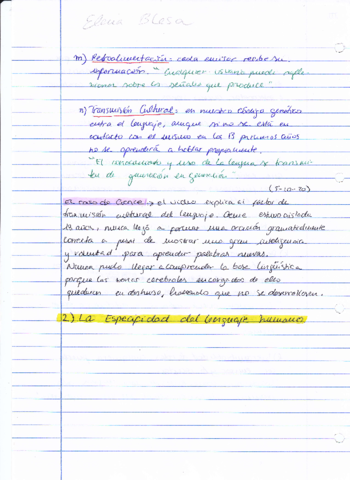 Elena Blosa
m) Retroalimentación: cada emisor recibe su
información. "Cualquier usuario puede refle-
xionar sobre las señales que produce"
n) Transmisión Cultural: en nuestro código genético
entra el lenguaje, aunque si no se está en
contacto con el mismo en los 13 primeros años
no se aprenderá a hablar propiamente.
"El conocimiento y uso de la lengua se transmi-
ten de generación en generación"
El caso de Genie: el vídeo explica el factor de
transmisión cultural del lenguaje. Genie estuvo aislada
13 años, nunca llegó a formar una oración gramaticalmente
correcta a pesar de mostrar una gran inteligencia
y voluntad para aprender palabras nuevas.
Nunca pudo llegar a comprender la base lingüística
porque las zonas cerebrales encargadas de ello
quedaron en desuso, haciendo que no se desarrollasen.
2) La Especifidad del lenguaje humano